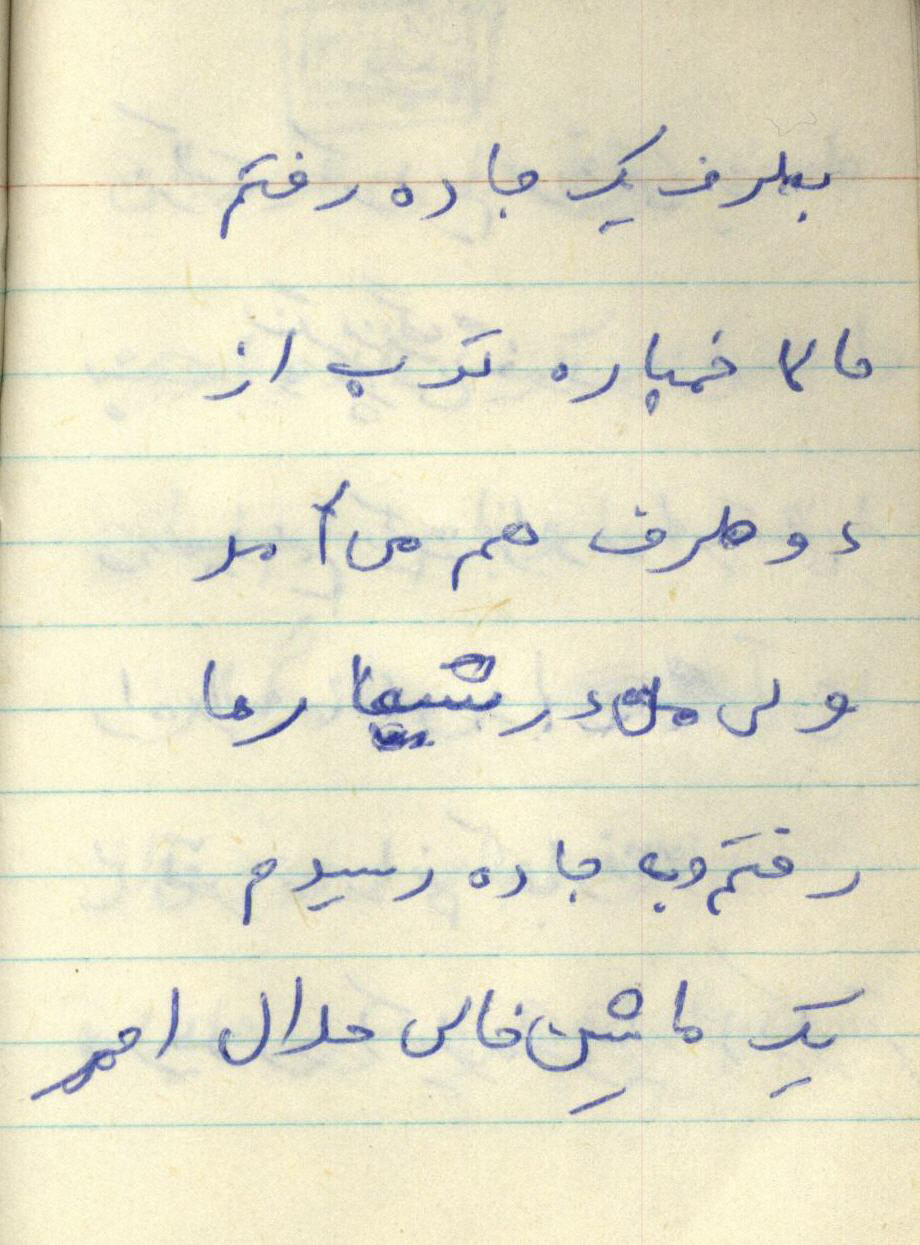 بطرف یک جاده رفتم
خمپاره توپ از
دو طرف هم می آمد
ولی من در شیارها
رفتم وبه جاده رسیدم
یک ماشین خالی هلال احمر